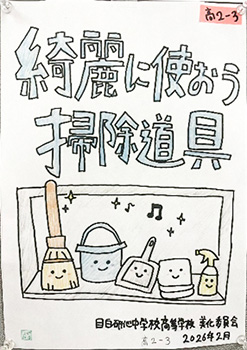 高2-3
綺麗に使おう
掃除道具
目白研心中学校高等学校 美化委員会
高2-3 2026年2月